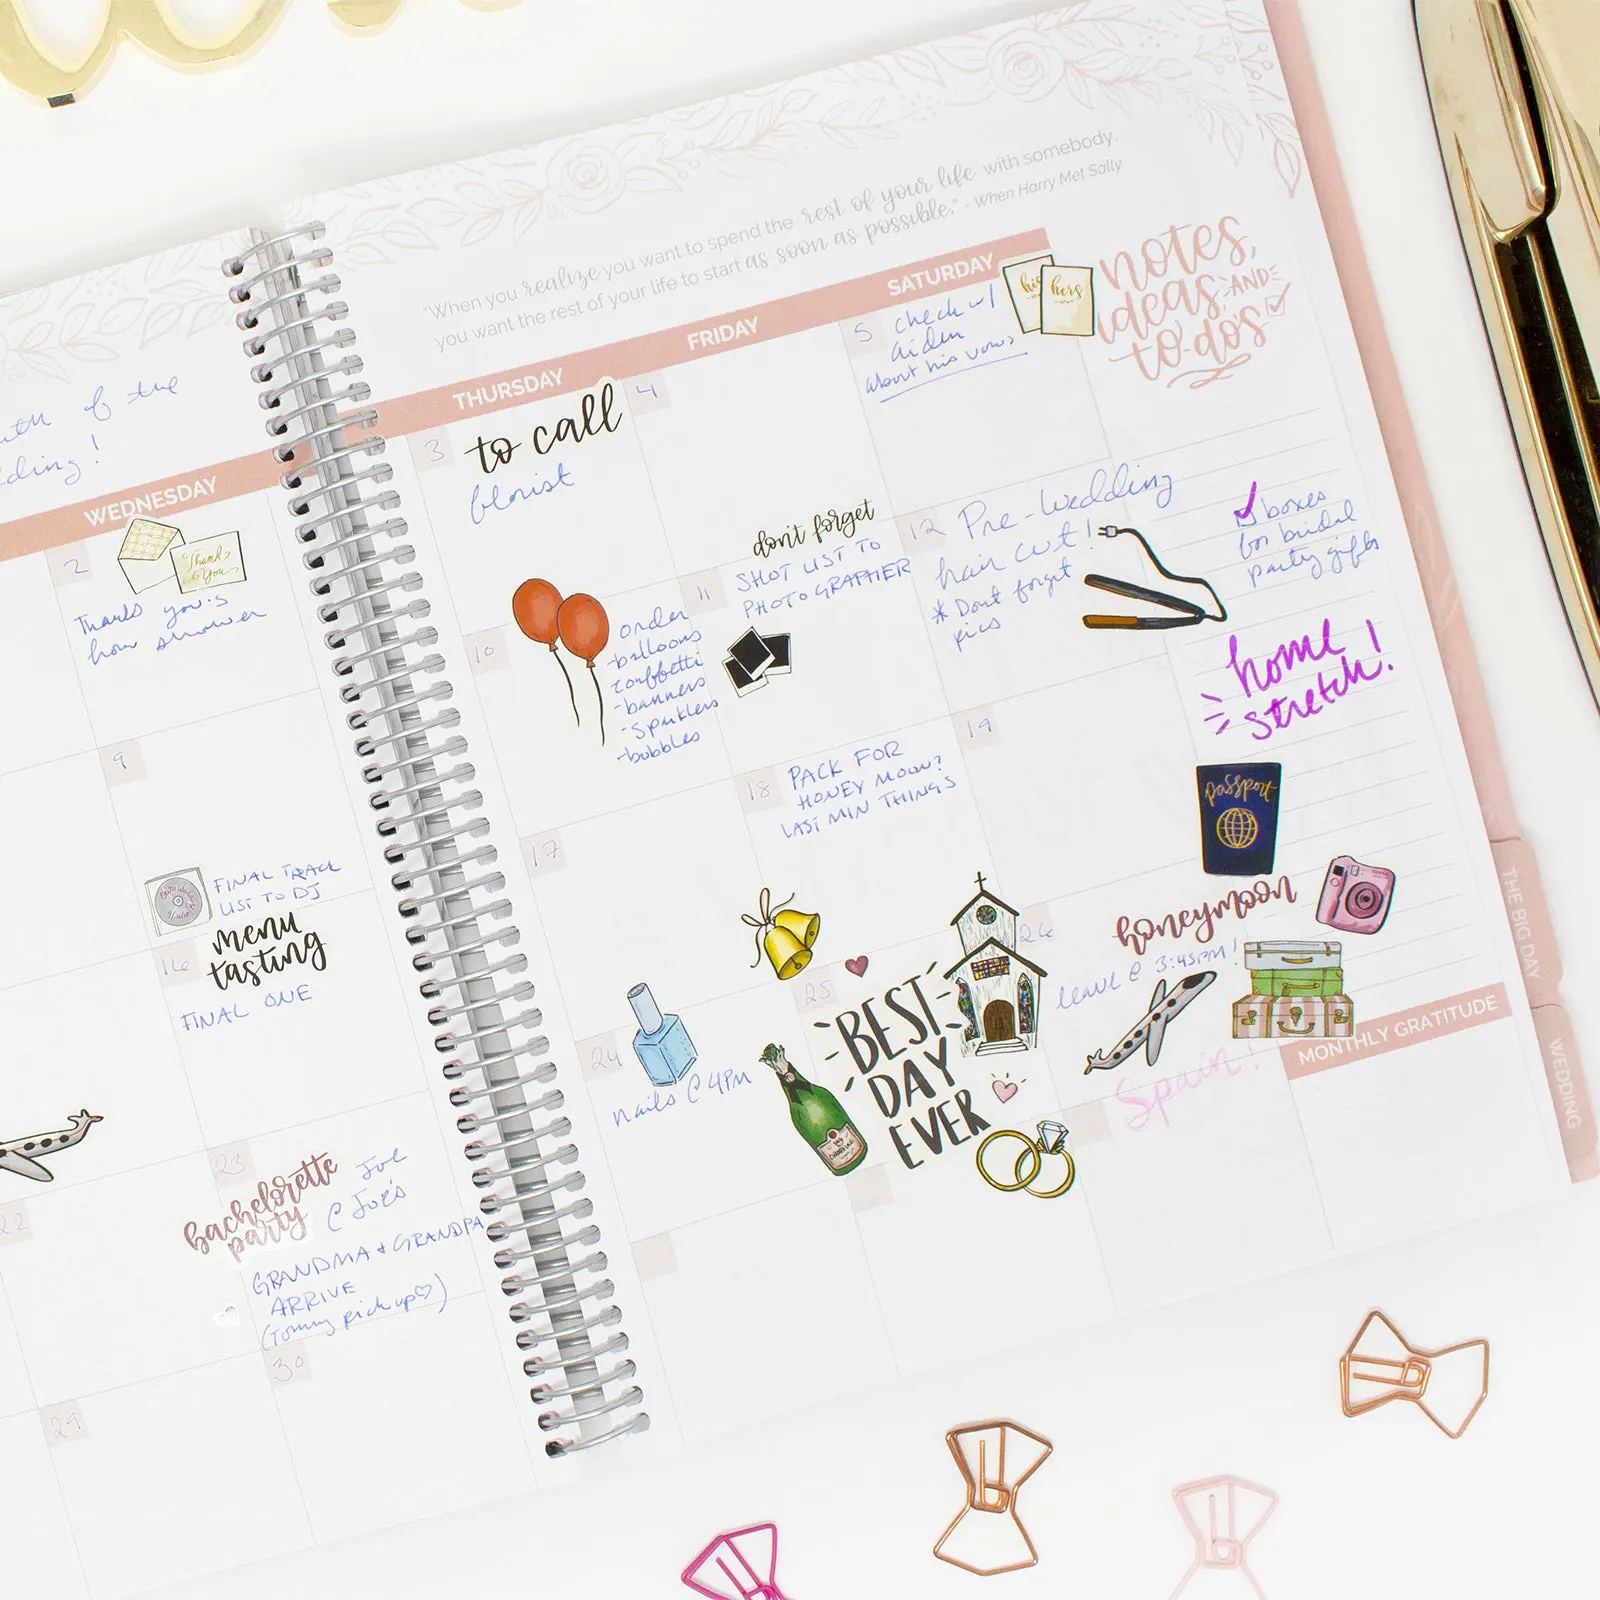 "When you realize you want to spend the rest of your life with somebody,
you want the rest of your life to start as soon as possible." - When Harry Met Sally
of the
!
WEDNESDAY
THURSDAY
FRIDAY
SATURDAY
notes,
ideas, AND
to-do's
2
Thank
You
Thank you's
from shower
3
to call
florist
4
5 check w/
aiden
about his vows
his
hers
9
10
order
-balloons
confetti
-banners
-sparklers
-bubbles
11
don't forget
SHOT LIST TO
PHOTOGRAPHER
12 Pre-Wedding
hair cut!
* Dont forget
pics
boxes
for bridal
party gifts
home
stretch!
FINAL TRACK
LIST TO DJ
16
menu
tasting
FINAL ONE
17
18 PACK FOR
HONEY MOON?
LAST MIN THINGS
19
passport
22
23
bachelorette
party
@ Joe's
GRANDMA + GRANDPA
ARRIVE
(Tommy pick up ♡)
24
nails @ 4PM
25
BEST
DAY
EVER
26
honeymoon
leave @ 3:45PM!
Spain!
MONTHLY GRATITUDE
29
30
THE BIG DAY
WEDDING